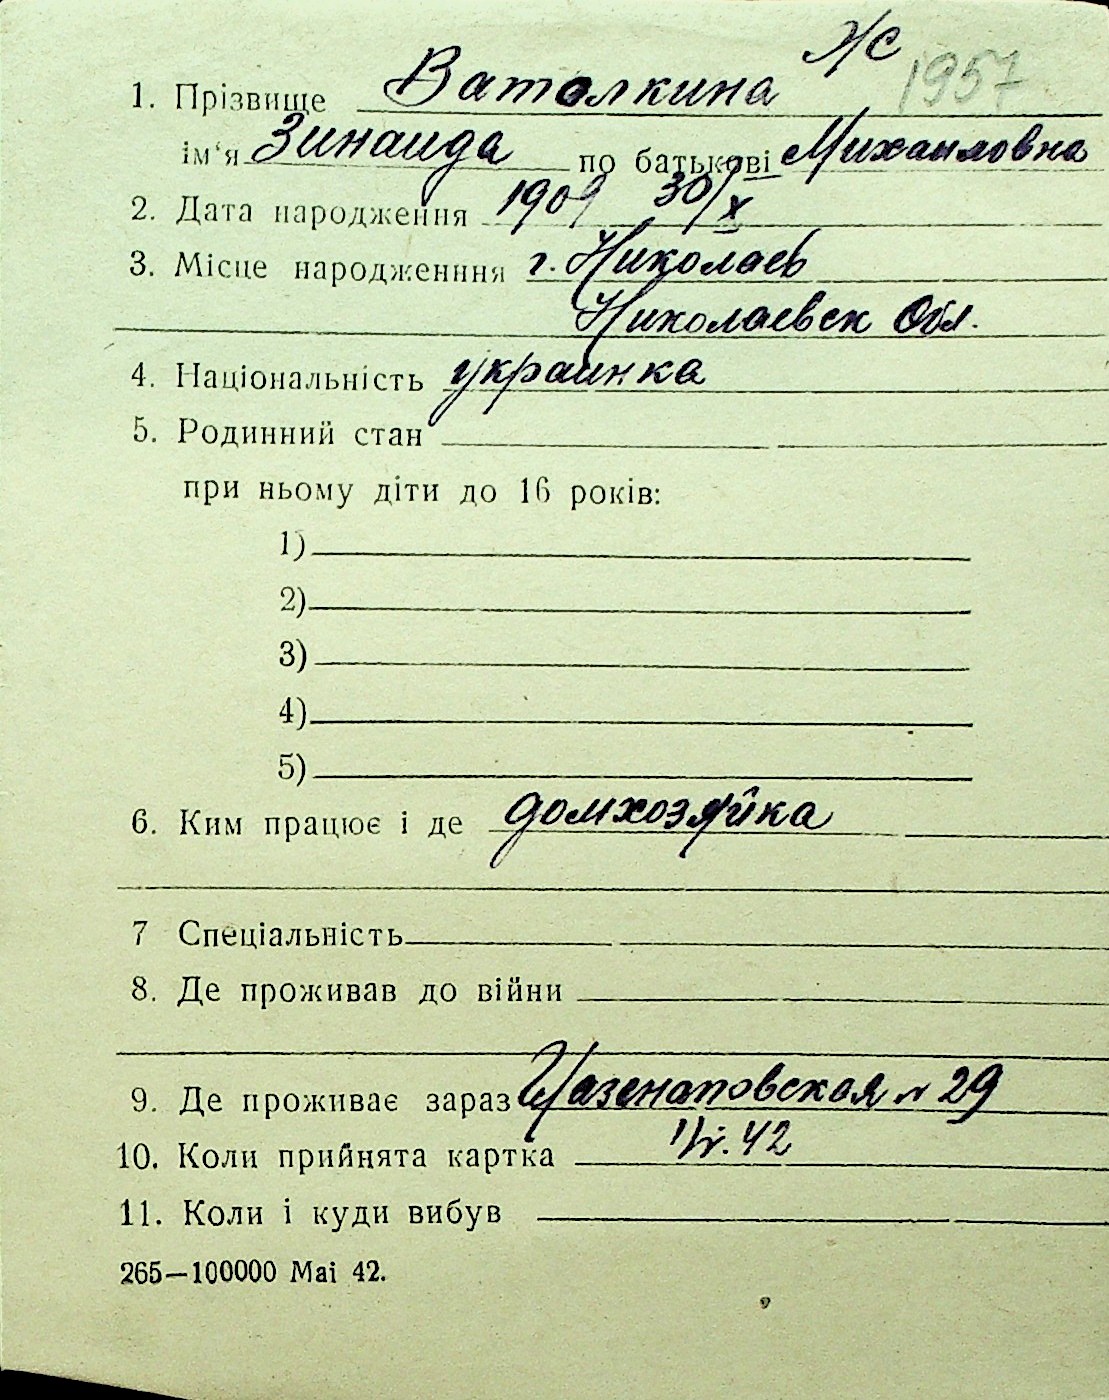 Ж/С
1957
1. Прізвище Ватолкина
ім'я Зинаида по батькові Михайловна
2. Дата народження 1909 30/X
3. Місце народженння г. Николаев
Николаевск Обл.
4. Національність украинка
5. Родинний стан
при ньому діти до 16 років:
1)
2)
3)
4)
5)
6. Ким працює і де домхозяйка
7 Спеціальність
8. Де проживав до війни
9. Де проживає зараз 29
10. Коли прийнята картка 42
11. Коли і куди вибув
265—100000 Mai 42.